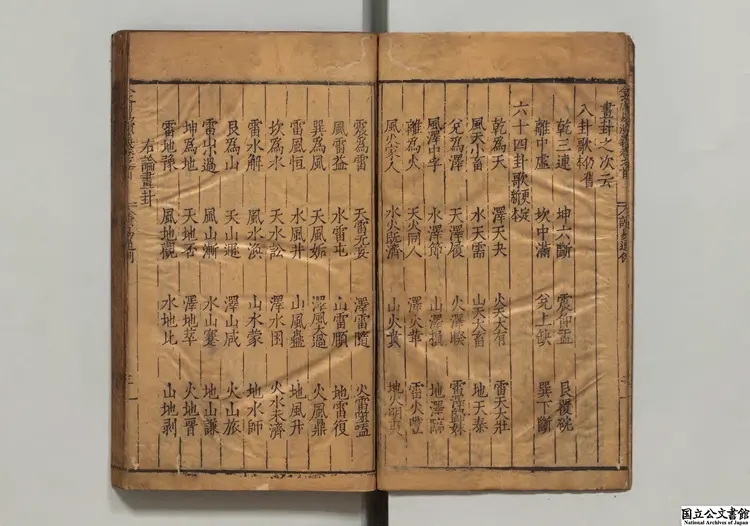 畫卦之次云
八卦歌仍舊
乾三連 坤六斷 震仰盂 艮覆碗
離中虛 坎中滿 兌上缺 巽下斷
六十四卦歌
乾為天 澤天夬 火天大有 雷天大壯
風天小畜 水天需 山天大畜 地天泰
兌為澤 天澤履 火澤睽 雷澤歸妹
風澤中孚 水澤節 山澤損 地澤臨
離為火 天火同人 澤火革 雷火豐
風火家人 水火既濟 山火賁 地火明夷
震為雷 天雷无妄 澤雷隨 火雷噬嗑
風雷益 水雷屯 山雷頤 地雷復
巽為風 天風姤 澤風大過 火風鼎
雷風恒 水風井 山風蠱 地風升
坎為水 天水訟 澤水困 火水未濟
雷水解 風水渙 山水蒙 地水師
艮為山 天山遯 澤山咸 火山旅
雷山小過 風山漸 水山蹇 地山謙
坤為地 天地否 澤地萃 火地晉
雷地豫 風地觀 水地比 山地剝
右論畫卦
国立公文書館
National Archives of Japan